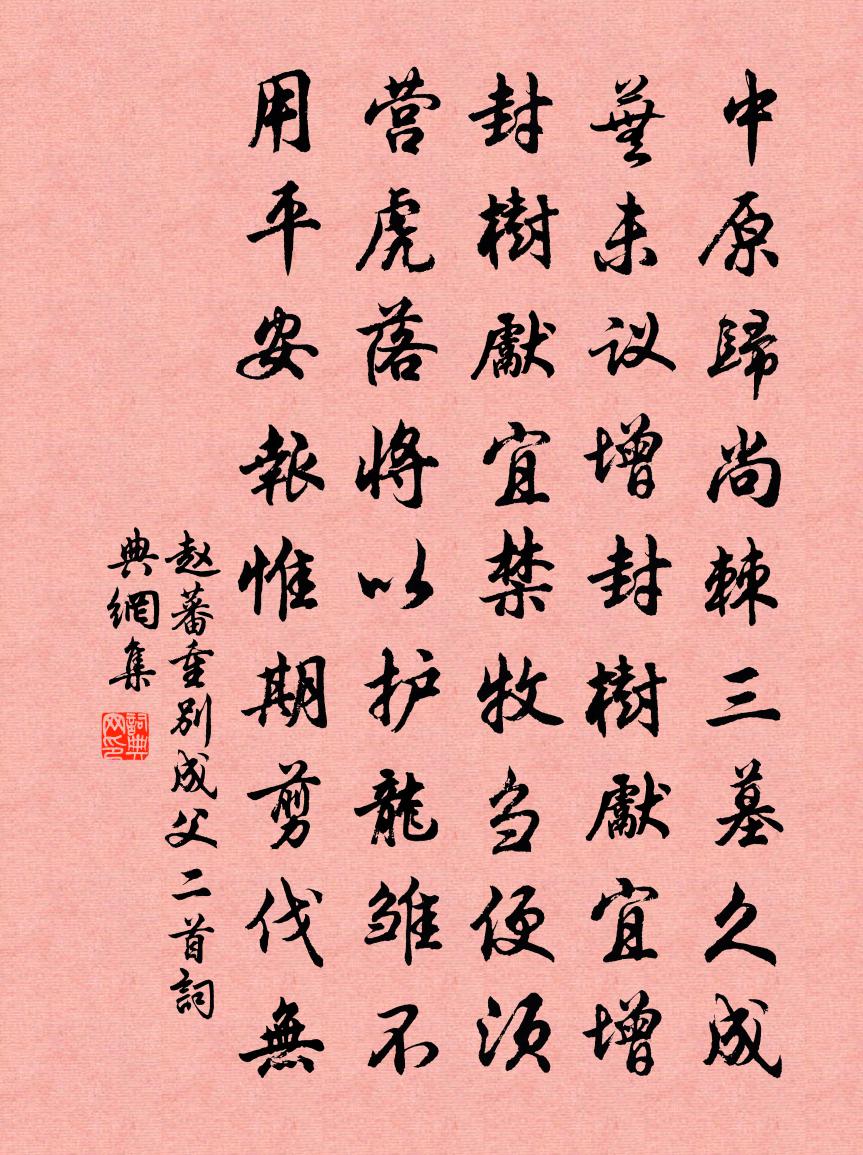 中原歸尚棘三墓久成
蕪未议增封樹獻宜增
封樹獻宜禁牧刍便须
营虎落将以护龍雏不
用平安報惟期剪伐無
赵蕃重别成父二首詞
典網集
詞典网印